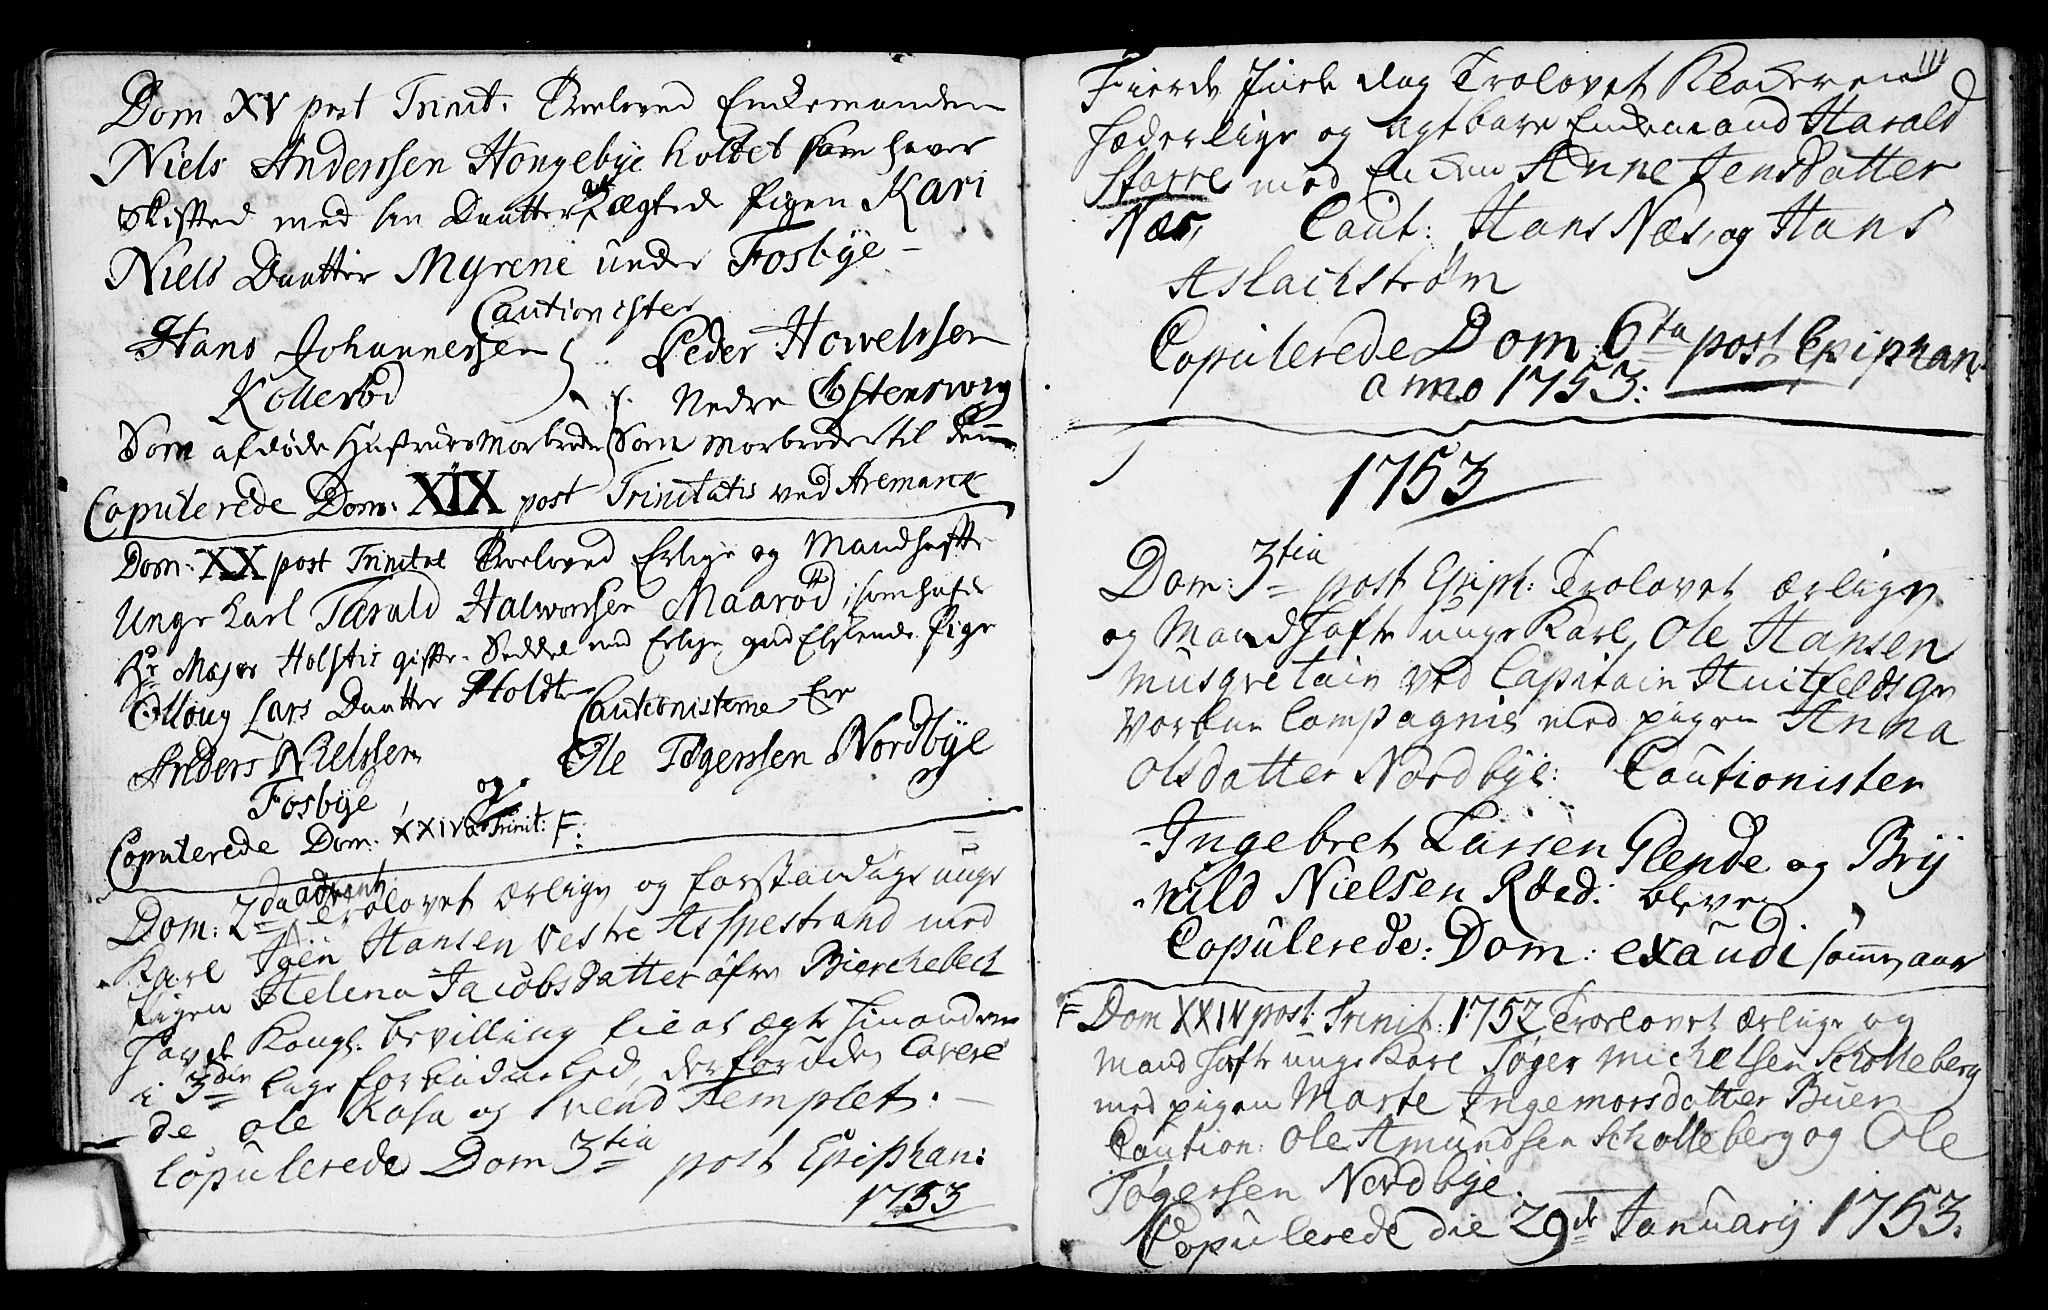 Dom XV post Trinit: Troloved Enkemanden
Niels Anderssen Hongebye holdet som haver
Skifted med sin Daatter ægtede Pigen Kari
Niels Daatter Myrene under Fosbye –
Cautionister
Hans Johannessen
Peder Howelssen
Kollerød
Nedre Østenswig
Som afdøde Hustrues Morbroder Som Morbroder til
Copulerede Dom: XIX post Trinitatis ved Aremarck
Dom: XX post Trinitat Troloved Erlige og Mandhafte
Unge Karl Tarald Halworsen Maarød, som hafde
Hr Major Holstis gifte-Seddel med Erlige gudElskende Pige
Lars Daatter Holdt
Cautionisterne Er
Anders Nielssen
Ole Tøgerssen Nordbye
Fosbye
og
Copulerede Dom: XXIV a Trinit: F:
Dom: 2da advent: Trolovet ærlige og forstandige unge
Karl Joen Hansen Vestre Asspestrand med
Pigen Helena Jacobsdatter øfre Bierchebech
havde Kongl: bevilling til at ægte hinanden
i 3die lige forbudne led, derforuden Cavere
de ole Kasa og Svend Templet. –
Copulerede Dom 3tia post Epiphan:
1753
111
Fierde Juele dag Trolovet Klockeren
hæderlige og Agtbare Enkemand Harald
Storre med Enken Anne Jensdatter
Næs, Caut: Hans Næs, og Hans
Aslachstrøm
Copulerede Dom 6ta post Epiphan:
anno 1753:
1753
Dom: 3tia post Epiph: Trolovet ærlige
og Mandhafte unge Karl, Ole Hansen
Musqvetair ved Capitain Huitfeldts Ge
vorbne Compagnie med pigen Anna
Olsdatter Nordbye: Cautionister
Ingebret Larsen Glende og Bry
nild Nielsen Røed: bleve
Copulerede: Dom: exaudi samme aar
F Dom XXIV post Trinit: 1752 Trolovet ærlige og
mandhafte unge Karl Tøger Michelsen Scholleberg
med pigen Marte Ingemorsdatter Buer
Caution: Ole Amundsen Scholleberg og Ole
Tøgersen Nordbye.
Copulerede die 29de Januarij 1753.